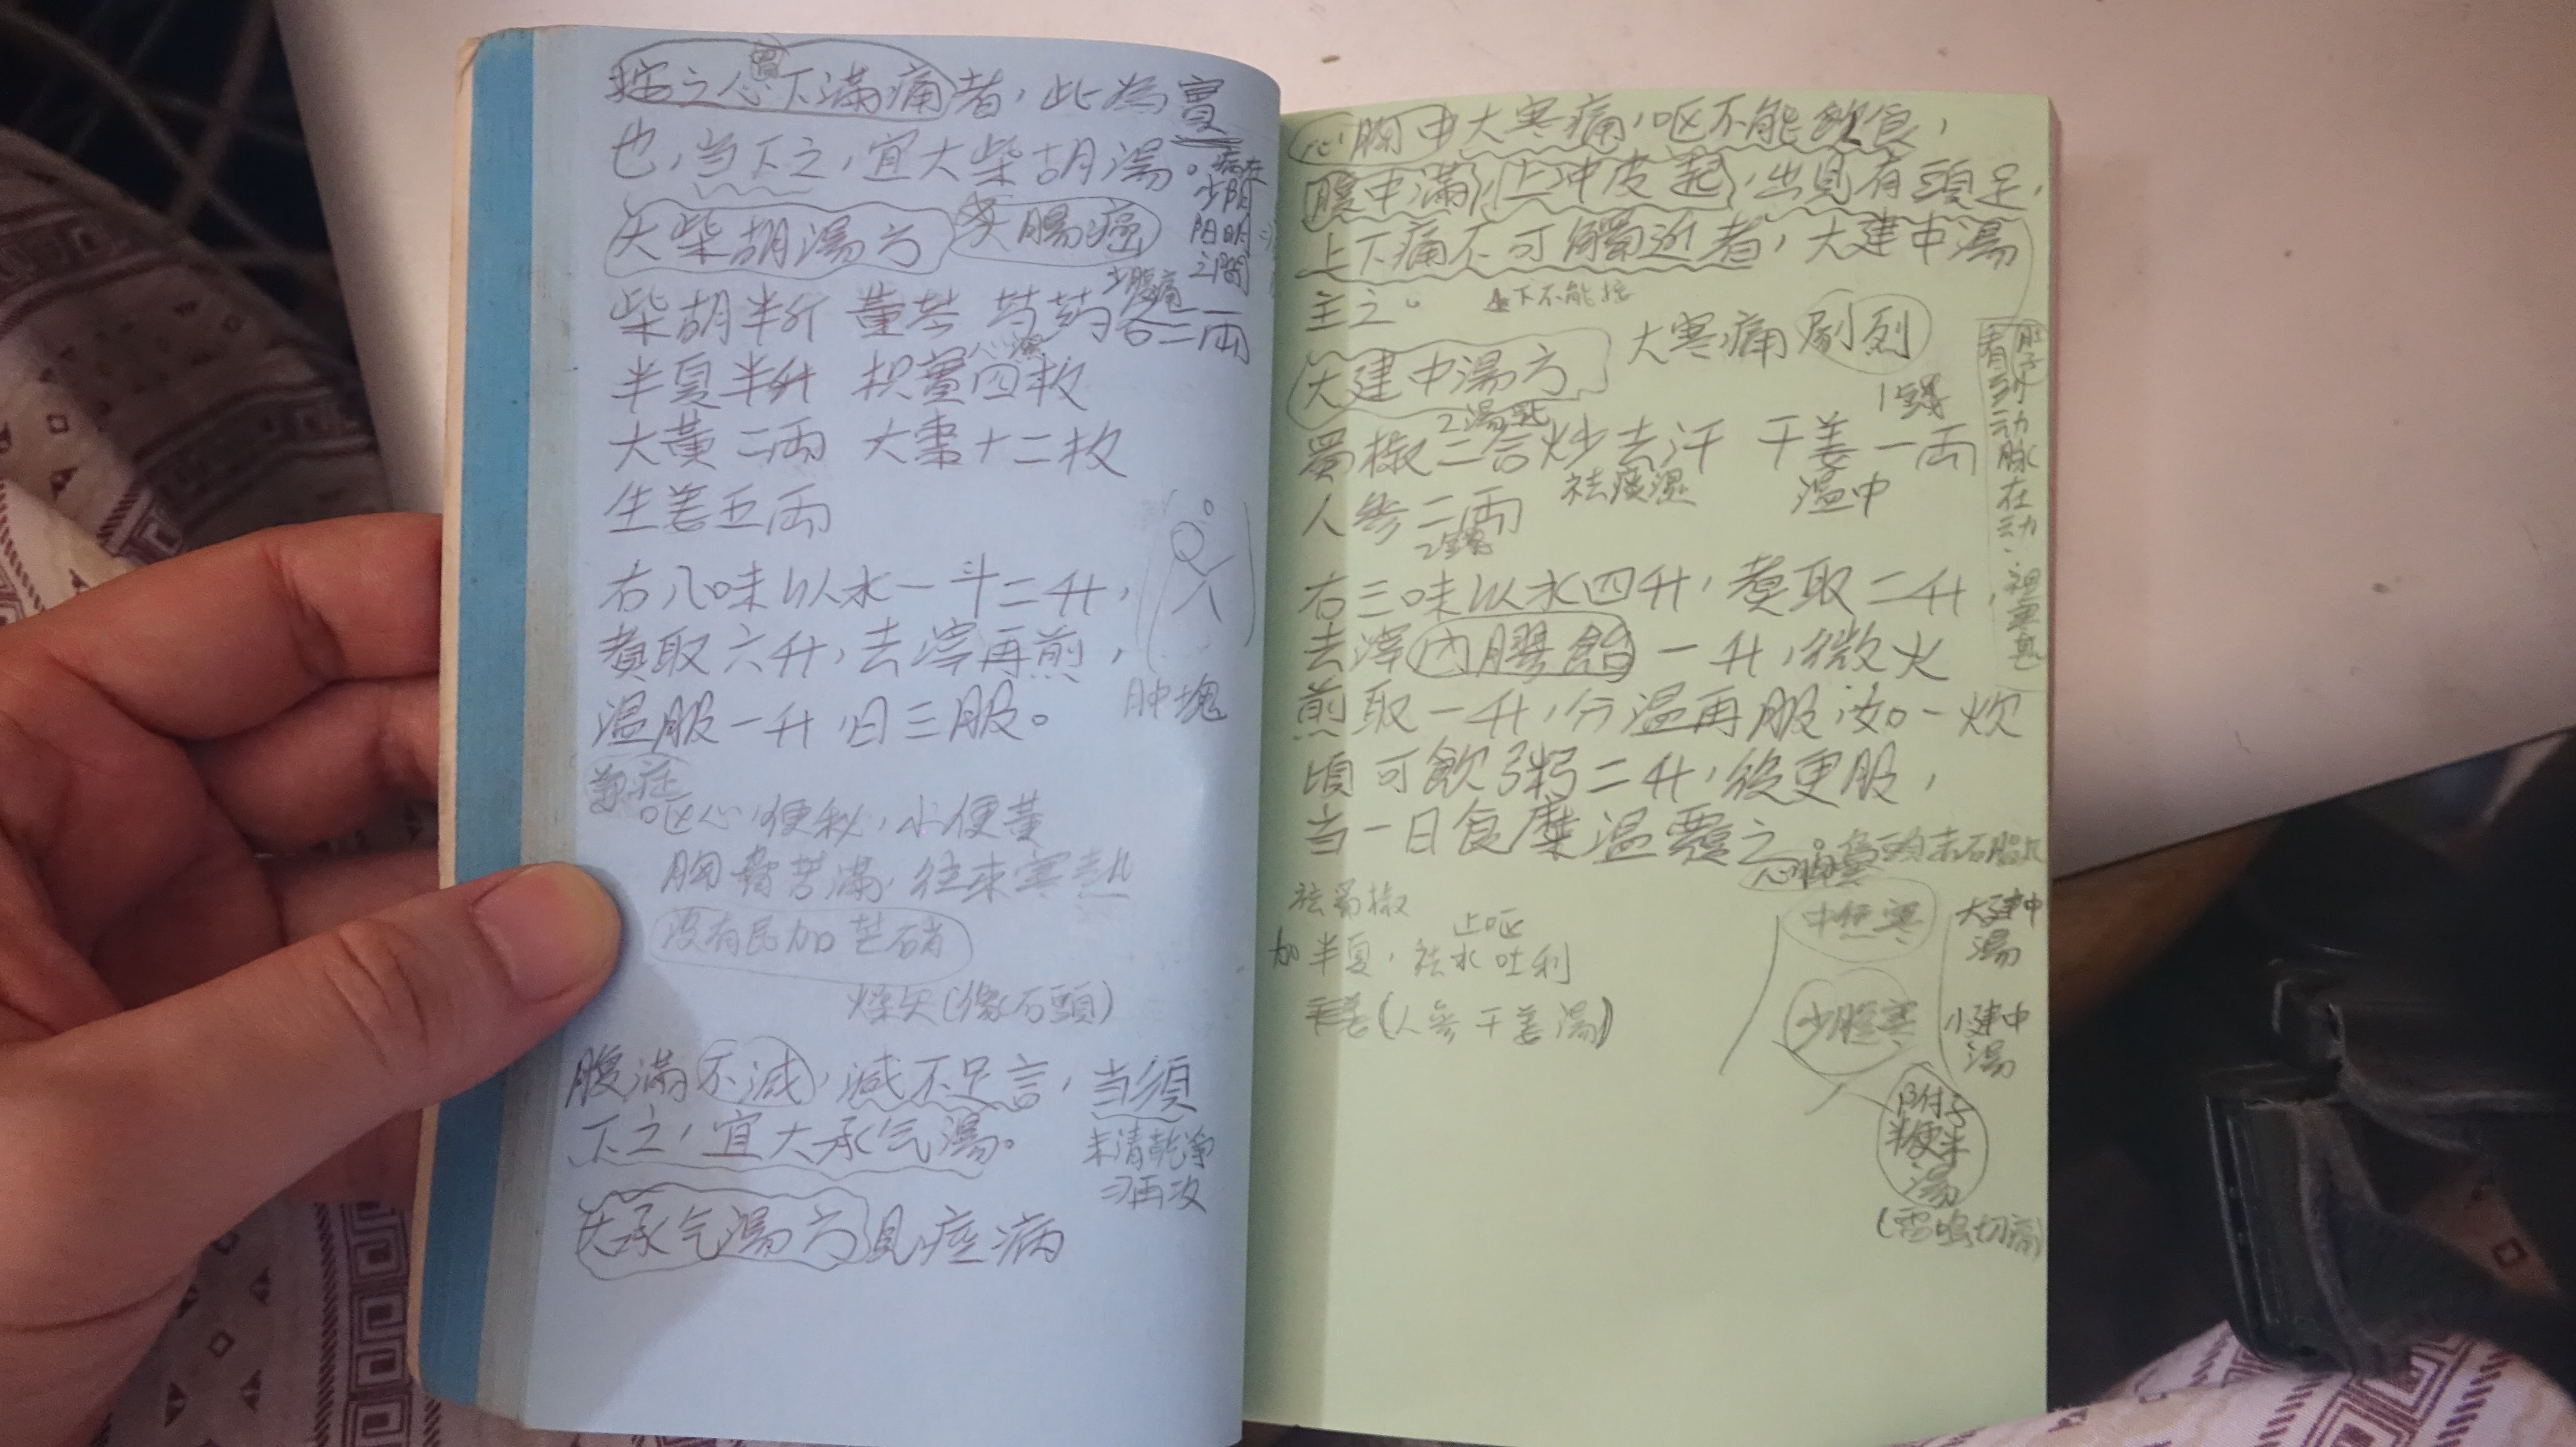 按之心下滿痛者，此為實
胃
也，当下之，宜大柴胡湯。
病在
少陽
阳明
之間
大柴胡湯方
腸癌
少腹痛
柴胡半斤 黃芩 芍药各三兩
半夏半升 枳實四枚
大黃二兩 大棗十二枚
生姜五兩
右八味以水一斗二升，
煮取六升，去滓再煎，
溫服一升 日三服。
肿塊
呕心，便秘，小便黃
胸脅苦滿，往來寒熱
沒有尻加芒硝
燥矢(像石頭)
腹滿不減，減不足言，当須
下之，宜大承气湯。
未清乾净
再攻
大承气湯方見痙病
心胸中大寒痛，呕不能飲食，
腹中滿，上冲皮起，出見有頭足，
上下痛不可觸近者，大建中湯
主之。
上下不能按
大寒痛 劇烈
肚子
看到动脉在动
大建中湯方
2湯匙
1錢
蜀椒二合炒去汗 干姜一兩
祛痰濕
溫中
人参二兩
2錢
右三味以水四升，煮取二升，
去滓內膠飴一升，微火
煎取一升，分溫再服，如一炊
頃可飲粥二升，後更服，
当一日食糜溫覆之。
祛蜀椒
止呕
加半夏，祛水吐利
生姜(人参干姜湯)
中焦寒
大建中
湯
少腹寒
小建中
湯
附子
粳米
湯
(雷鳴切痛)